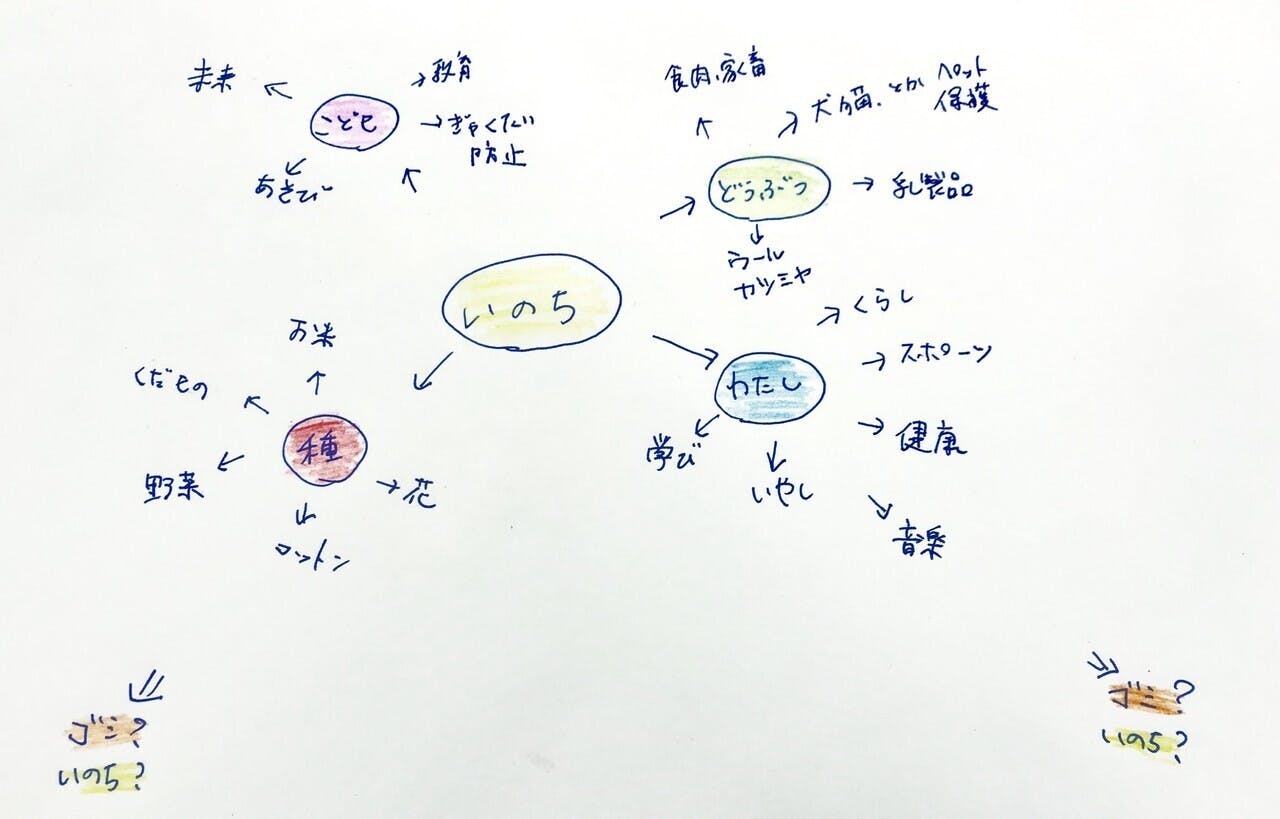 未来
こども
教育
ぎゃくたい
防止
あさび
食肉、家畜
犬猫、とか ペット
保護
どうぶつ
乳製品
ウール
カツミヤ
いのち
お米
くだもの
種
野菜
花
コットン
わたし
くらし
スポーツ
健康
学び
いやし
音楽
ゴミ?
いのち?
ゴミ?
いのち?